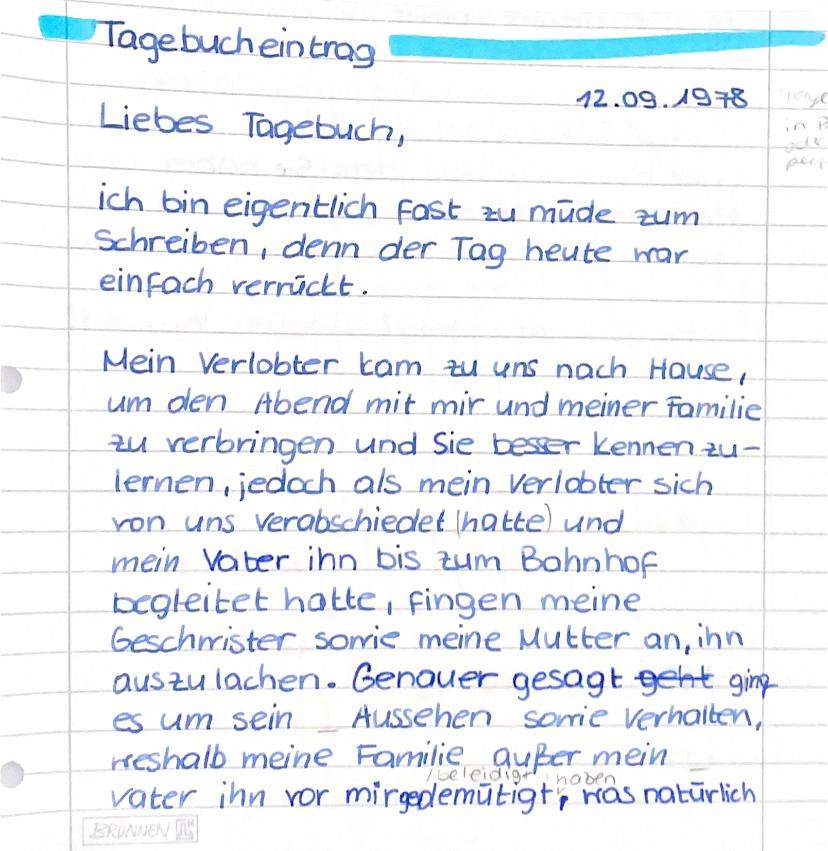 Tagebucheintrag
12.09.1978
Liebes Tagebuch,
in
ich bin eigentlich fast zu müde zum
Schreiben, denn der Tag heute war
einfach verrückt.
Mein Verlobter kam zu uns nach Hause,
um den Abend mit mir und meiner Familie
zu verbringen und Sie besser kennen zu-
lernen, jedoch als mein Verlobter sich
von uns verabschiedet (hatte) und
mein Vater ihn bis zum Bahnhof
begleitet hatte, fingen meine
Geschwister sowie meine Mutter an, ihn
auszulachen. Genauer gesagt geht ging
es um sein _ Aussehen sowie Verhalten,
weshalb meine Familie außer mein
/beleidigt haben
Vater ihn vor mir gedemütigt, was natürlich
BRUNNEN